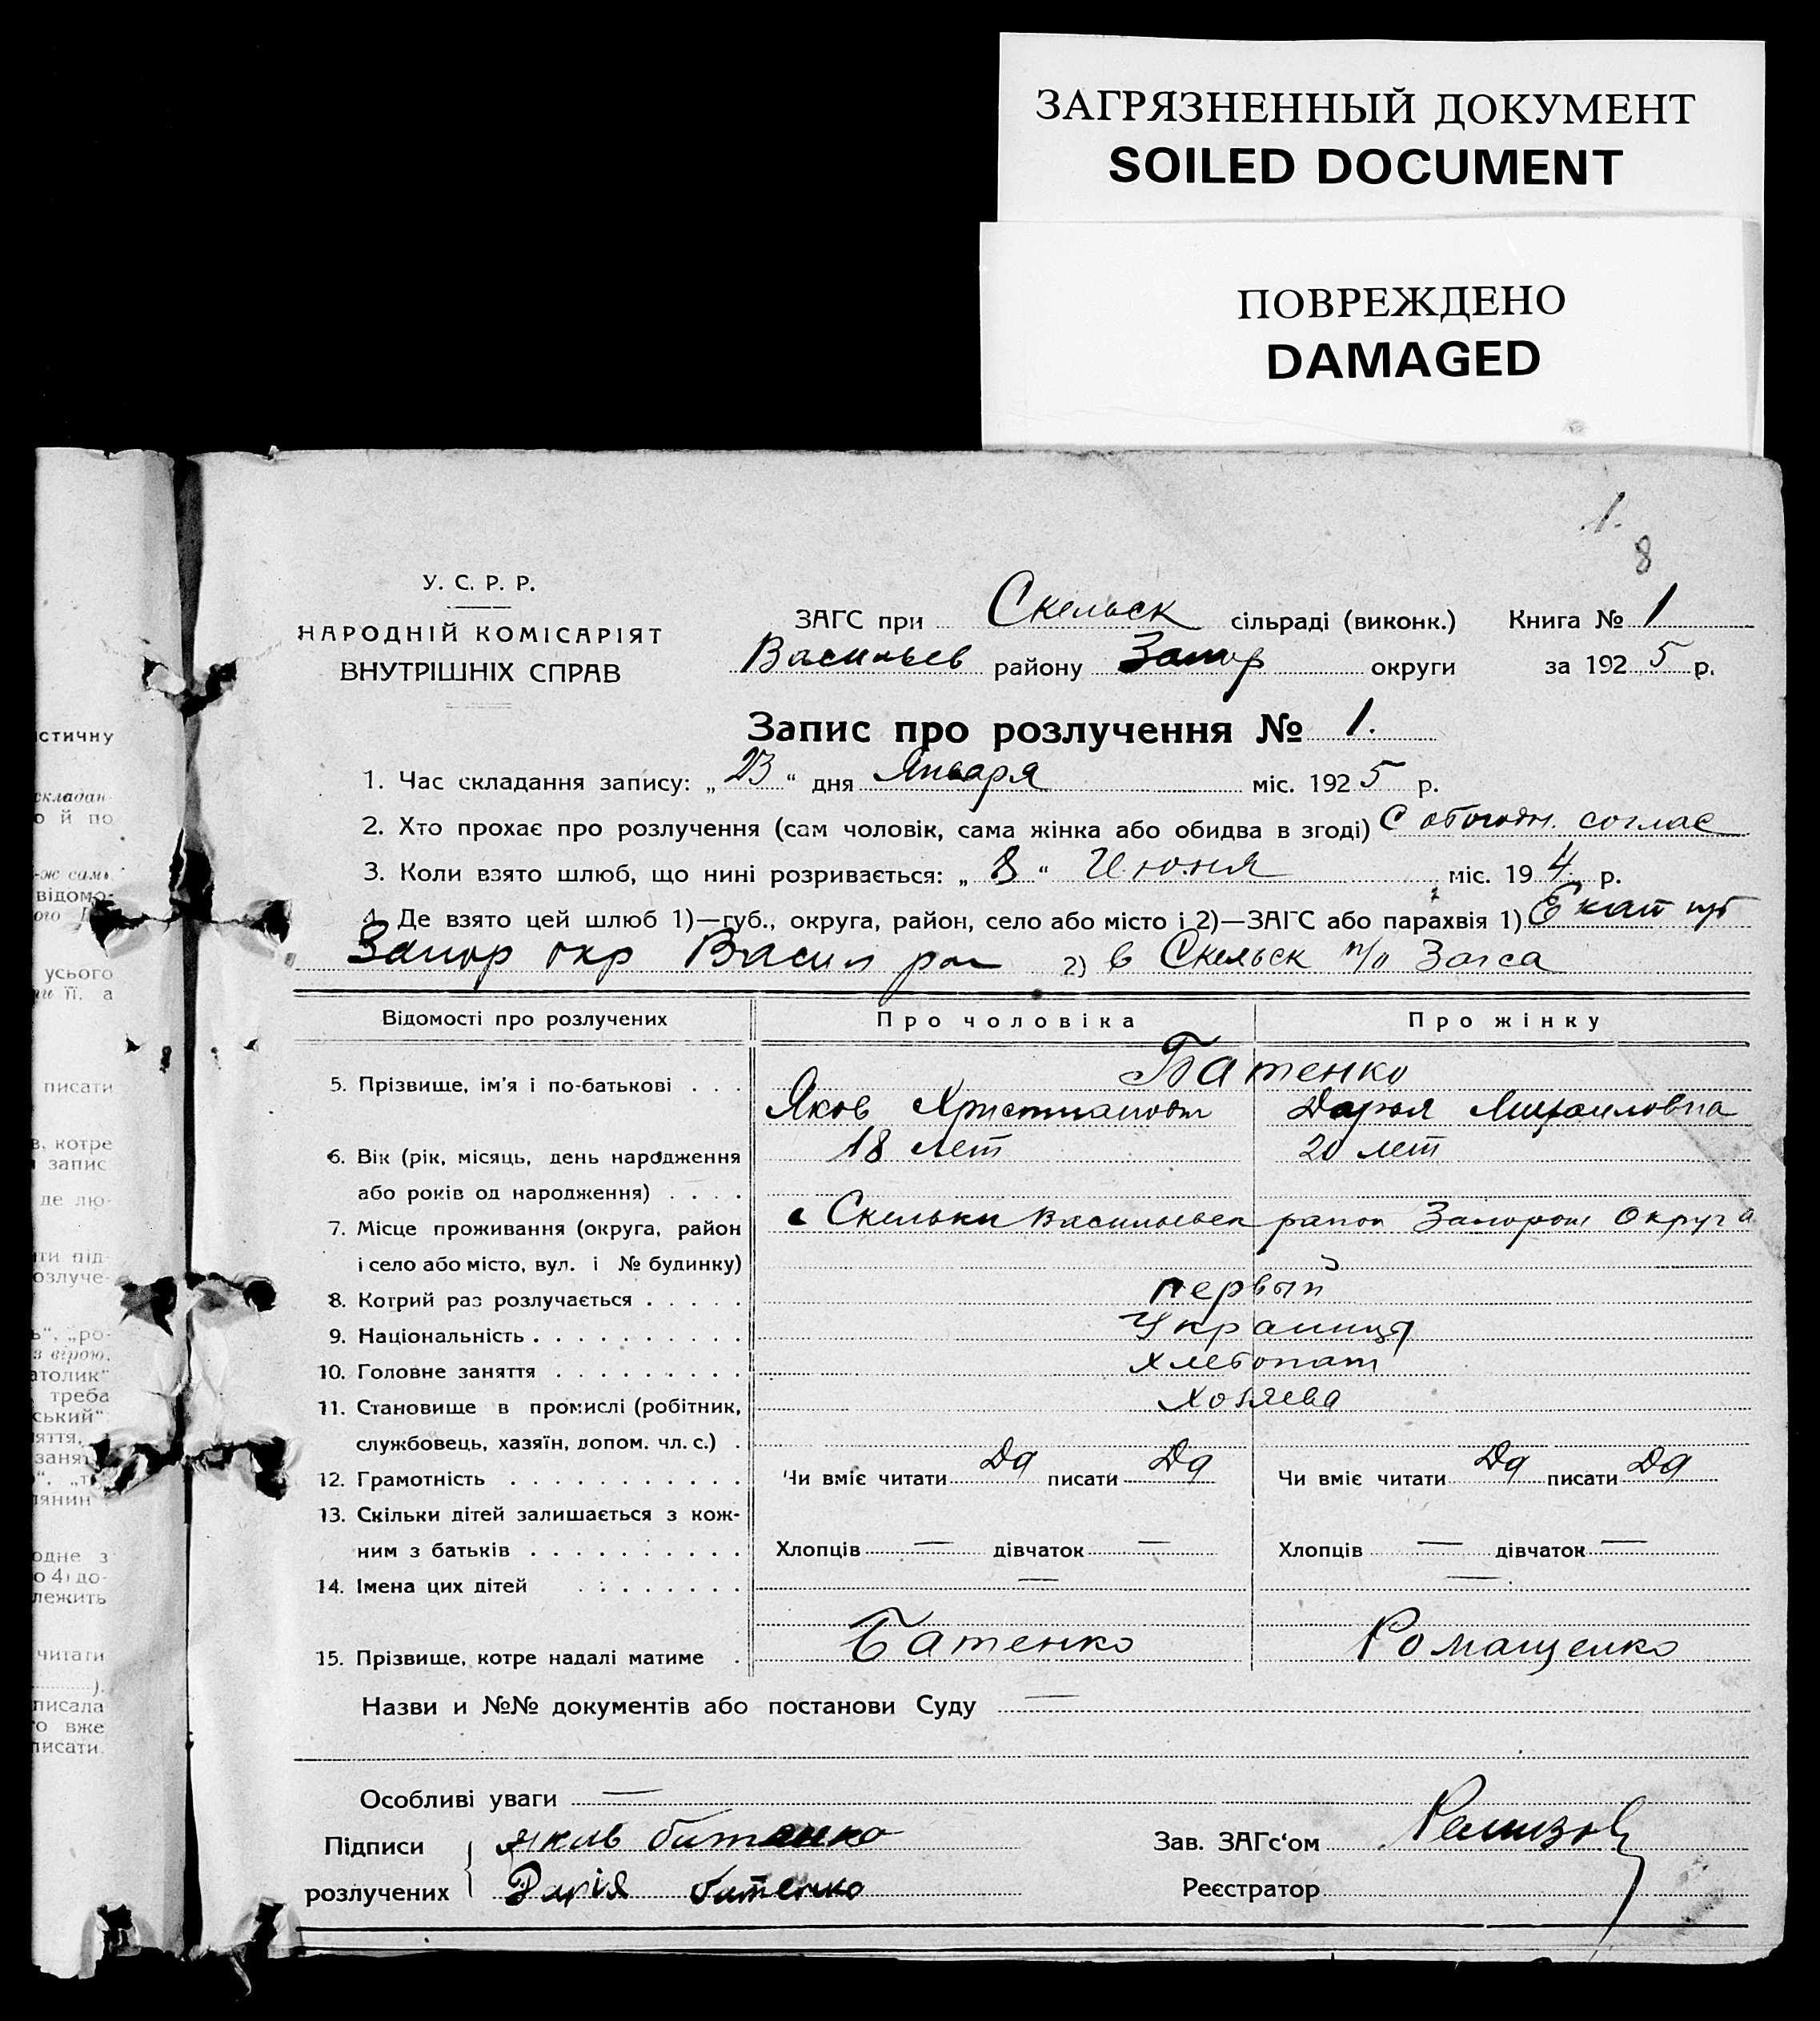 ЗАГРЯЗНЕННЫЙ ДОКУМЕНТ
SOILED DOCUMENT
ПОВРЕЖДЕНО
DAMAGED
1.
8
У. С. Р. Р.
НАРОДНІЙ КОМІСАРІЯТ
ВНУТРІШНІХ СПРАВ
ЗАГС при Скельск сільраді (виконк.) Книга № 1
Васильев району Запор округи за 1925 р.
Запис про розлучення № 1.
1. Час складання запису: „23“ дня Января міс. 1925 р.
2. Хто прохає про розлучення (сам чоловік, сама жінка або обидва в згоді) С обоюдн. соглас
3. Коли взято шлюб, що нині розривається: „8“ Июня міс. 194 р.
4. Де взято цей шлюб 1)—губ., округа, район, село або місто і 2)—ЗАГС або парахвія 1) Екат губ
Запор окр Васил рай 2) в Скельск п/о Загса
Відомості про розлучених Про чоловіка Про жінку
5. Прізвище, ім'я і по-батькові . . . Батенко
Яков Христианови Дарья Михаиловна
6. Вік (рік, місяць, день народження 18 лет 20 лет
або років од народження) . . . .
7. Місце проживання (округа, район с Скельки Васильевск район Запорож Округа
і село або місто, вул. і № будинку)
8. Котрий раз розлучається . . . . . первый
9. Національність . . . . . . . . . . Украинцы
10. Головне заняття . . . . . . . . . Хлебопаш
11. Становище в промислі (робітник, Хозяева
службовець, хазяїн, допом. чл. с.) .
12. Грамотність . . . . . . . . . . . Чи вміє читати Да писати Да Чи вміє читати Да писати Да
13. Скільки дітей залишається з кож-
ним з батьків . . . . . . . . . . Хлопців — дівчаток — Хлопців — дівчаток —
14. Імена цих дітей . . . . . . . — —
15. Прізвище, котре надалі матиме . Батенко Ромащенко
Назви и №№ документів або постанови Суду —
Особливі уваги —
Підписи Яков Батенко Зав. ЗАГс'ом
розлучених Дарія Батенко Реєстратор
стичну
складан-
о й по
-ж самі
відомо-
усього
її. а
писати
в, котре
запис
де лю-
ти під-
озлуче-
ь“, „ро-
з вірою.
атолик“
треба
ський“
яття,
занят
лянин
одне з
о 4) до-
лежить
читати
).
писала
го вже
писати.